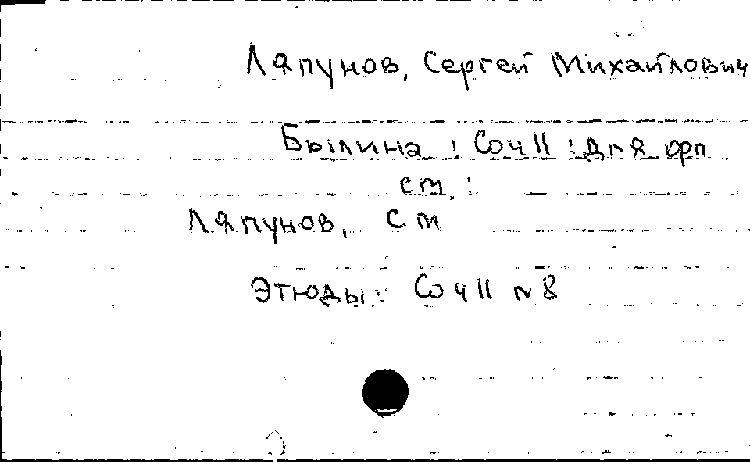 Ляпунов, Сергей Михайлович
Былина : Соч 11 : для фрп
см. :
Ляпунов, С М
Этюды : Соч 11 № 8